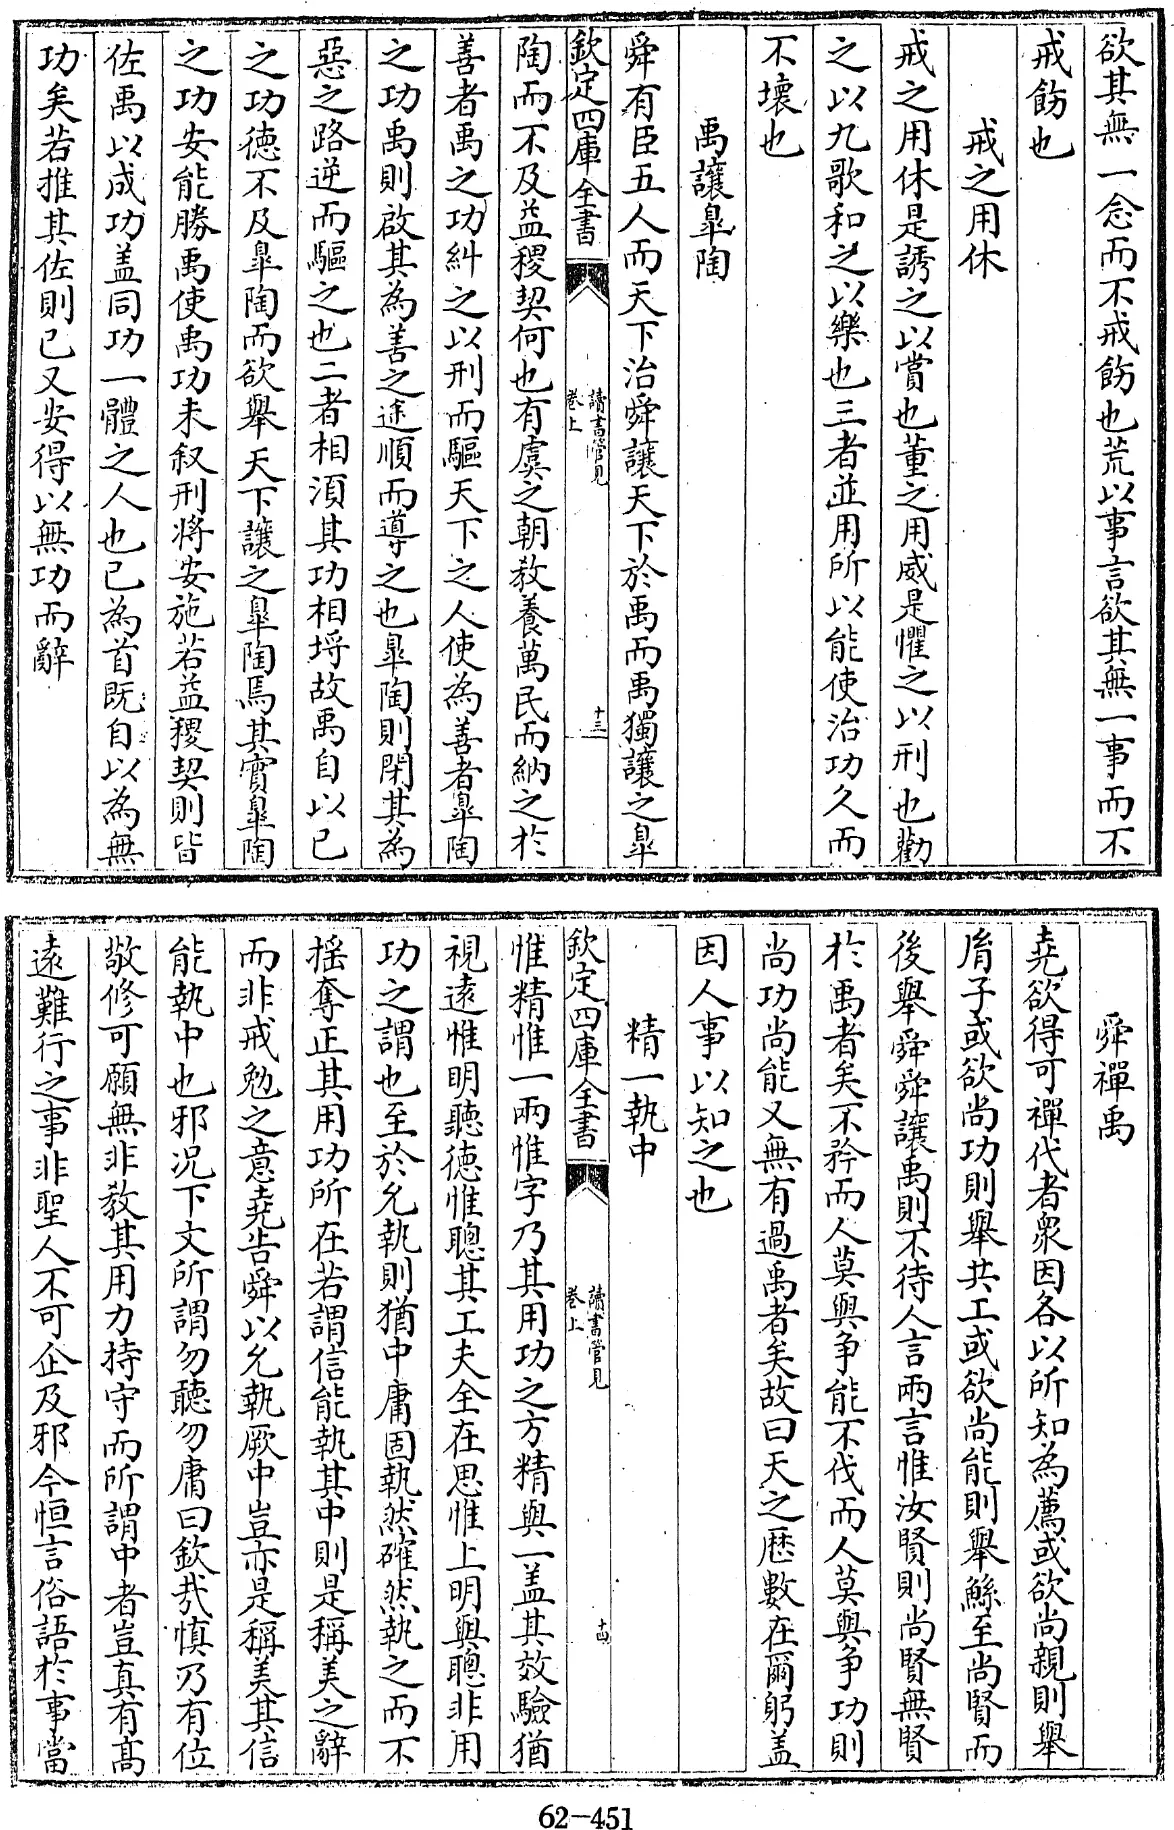 欲其無一念而不戒飭也荒以事言欲其無一事而不
戒飭也
戒之用休
戒之用休是誘之以賞也董之用威是懼之以刑也勸
之以九歌和之以樂也三者並用所以能使治功久而
不壞也
禹讓臯陶
舜有臣五人而天下治舜讓天下於禹而禹獨讓之臯
欽定四庫全書
讀書管見
卷上
十三
陶而不及益稷契何也有虞之朝教養萬民而納之於
善者禹之功糾之以刑而驅天下之人使為善者臯陶
之功禹則啟其為善之途順而導之也臯陶則閉其為
惡之路逆而驅之也二者相湏其功相埒故禹自以已
之功德不及臯陶而欲舉天下讓之臯陶焉其實臯陶
之功安能勝禹使禹功未叙刑將安施若益稷契則皆
佐禹以成功盖同功一體之人也已為首既自以為無
功矣若推其佐則已又安得以無功而辭
舜禪禹
堯欲得可禪代者衆因各以所知為薦或欲尚親則舉
胤子或欲尚功則舉共工或欲尚能則舉鯀至尚賢而
後舉舜舜讓禹則不待人言兩言惟汝賢則尚賢無賢
於禹者矣不矜而人莫與争能不伐而人莫與争功則
尚功尚能又無有過禹者矣故曰天之厯數在爾躬盖
因人事以知之也
精一執中
欽定四庫全書
讀書管見
卷上
十四
惟精惟一兩惟字乃其用功之方精與一盖其效驗猶
視遠惟明聽徳惟聰其工夫全在思惟上明與聰非用
功之謂也至於允執則猶中庸固執然確然執之而不
揺奪正其用功所在若謂信能執其中則是稱美之辭
而非戒勉之意堯告舜以允執厥中豈亦是稱美其信
能執中也邪况下文所謂勿聽勿庸曰欽哉慎乃有位
敬修可願無非教其用力持守而所謂中者豈真有髙
遠難行之事非聖人不可企及邪今恒言俗語於事當
62-451